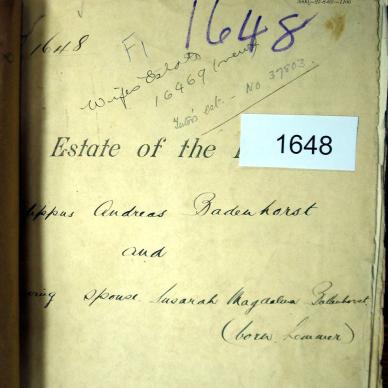 1648
1648
F1
Wifes Estate
16469
Inter. est. - No 37803
Estate of the
1648
lippus Andreas Badenhorst
and
ving spouse Susarah Magdalena Badenhorst
(born Lemmer)